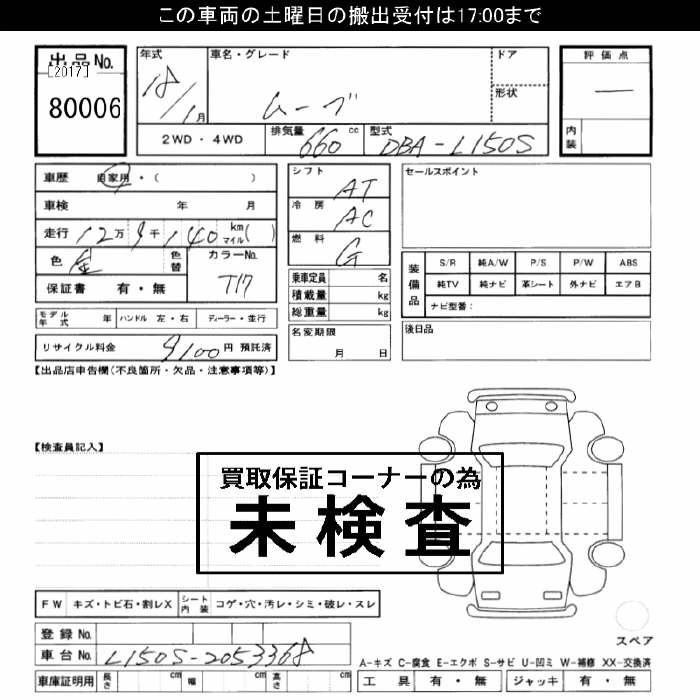 この車両の土曜日の搬出受付は17:00まで
出品No.
[2017]
80006
年式
18/1月
車名・グレード
ムーブ
ドア
形状
2WD・4WD
排気量 660 cc
型式 DBA-L150S
評価点
―
内装
車歴 自家用・( )
車検 年 月
走行 12万9千140 km マイル( )
色 金 色替
カラーNo.
T17
保証書 有・無
シフト AT
冷房 AC
燃料 G
乗車定員 名
積載量 kg
総重量 kg
セールスポイント
装備品
S/R 純A/W P/S P/W ABS
純TV 純ナビ 革シート 外ナビ エアB
ナビ型番:
モデル年式 年 ハンドル 左・右 ディーラー・並行
名変期限
月 日
後日品
リサイクル料金 9100円 預託済
【出品店申告欄(不良箇所・欠品・注意事項等)】
【検査員記入】
買取保証コーナーの為
未検査
FW キズ・トビ石・割レX シート内装 コゲ・穴・汚レ・シミ・破レ・スレ
登録No.
車台No. L150S-2053368
スペア
A-キズ C-腐食 E-エクボ S-サビ U-凹ミ W-補修 XX-交換済
車庫証明用 長さ cm 幅 cm 高さ cm
工具 有・無 ジャッキ 有・無